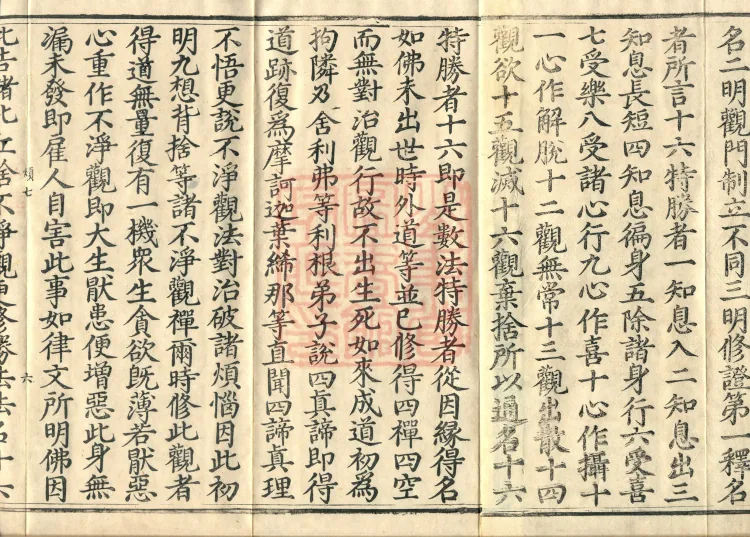 名二明觀門制立不同三明修證第一釋名
者所言十六特勝者一知息入二知息出三
知息長短四知息徧身五除諸身行六受喜
七受樂八受諸心行九心作喜十心作攝十
一心作解脫十二觀無常十三觀出散十四
觀欲十五觀滅十六觀棄捨所以通名十六
特勝者十六即是數法特勝者從因緣得名
如佛未出世時外道等並已修得四禪四空
而無對治觀行故不出生死如來成道初為
拘隣乃舍利弗等利根弟子說四真諦即得
道跡復為摩訶迦葉絺那等直聞四諦真理
不悟更說不淨觀法對治破諸煩惱因此初
明九想背捨等諸不淨觀禪爾時修此觀者
得道無量復有一機衆生貪欲旣薄若厭惡
心重作不淨觀即大生厭患便增惡此身無
漏未發即雇人自害此事如律文所明佛因
煩七 六
此告諸比丘捨不淨觀更修勝法法名十六